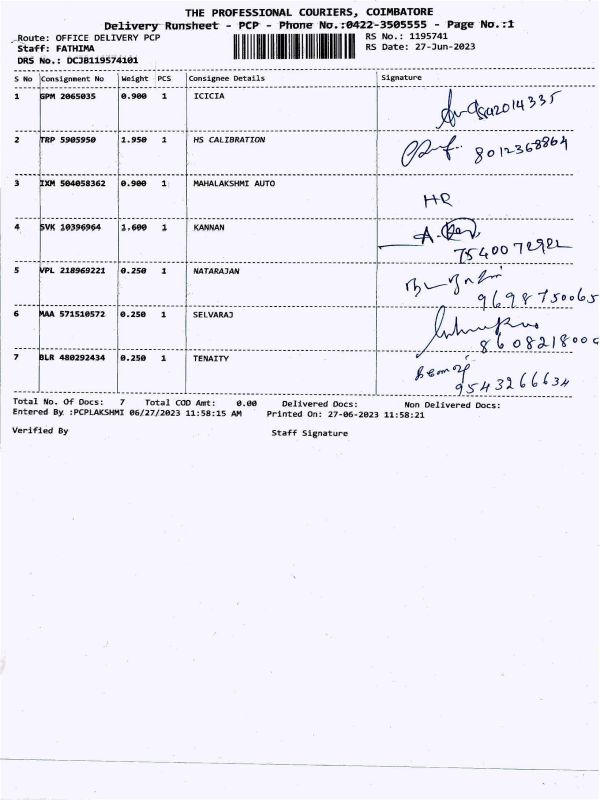 THE PROFESSIONAL COURIERS, COIMBATORE
Delivery Runsheet - PCP - Phone No.:0422-3505555 - Page No.:1
Route: OFFICE DELIVERY PCP RS No.: 1195741
Staff: FATHIMA RS Date: 27-Jun-2023
DRS No.: DCJB119574101
S No Consignment No Weight PCS Consignee Details Signature
1 GPM 2065035 0.900 1 ICICIA
2 TRP 5905950 1.950 1 HS CALIBRATION 8012368864
3 IXM 504058362 0.900 1 MAHALAKSHMI AUTO HR
4 SVK 10396964 1.600 1 KANNAN
5 VPL 218969221 0.250 1 NATARAJAN 9698750065
6 MAA 571510572 0.250 1 SELVARAJ
7 BLR 480292434 0.250 1 TENAITY 9543266634
Total No. Of Docs: 7 Total COD Amt: 0.00 Delivered Docs: Non Delivered Docs:
Entered By :PCPLAKSHMI 06/27/2023 11:58:15 AM Printed On: 27-06-2023 11:58:21
Verified By Staff Signature